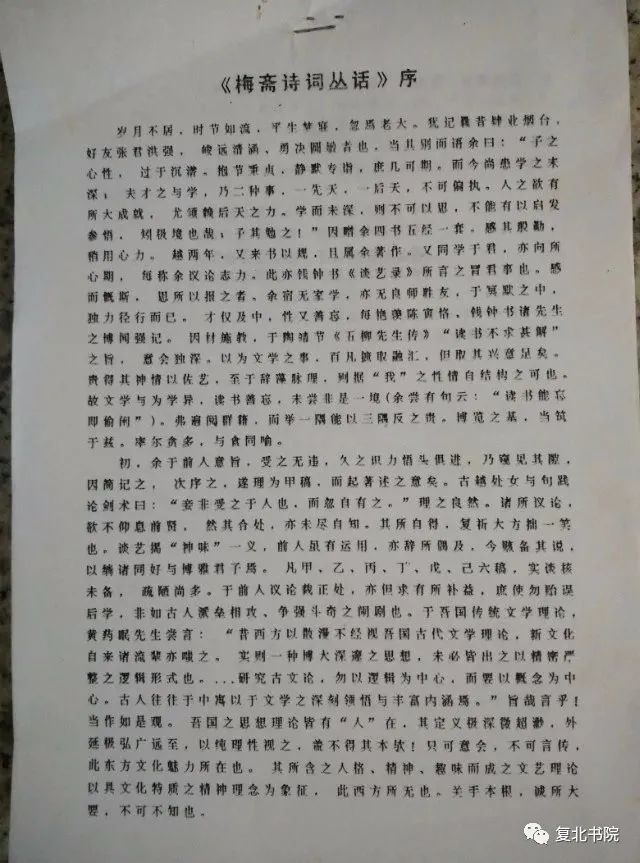 《梅斋诗词丛话》序
岁月不居，时节如流，平生梦寐，忽焉老大。犹记曩昔肄业烟台，
好友张君洪强，峻远清涵、勇决圆敏者也，当其别而语余曰：“子之
心性，过于沉潜。抱节重贞，静默专诣，庶几可期。而今尚患学之未
深；夫才之与学，乃二种事，一先天，一后天，不可偏执。人之欲有
所大成就，尤须赖后天之力。学而未深，则不可以思，不能有以启发
参悟，矧极境也哉；子其勉之！”因赠余四书五经一套。感其殷勤，
稍用心力。越两年，又来书以规，且属余著作。又同学于君，亦向所
心期，每称余议论志力。此亦钱钟书《谈艺录》所言之冒君事也。感
而慨斯，思所以报之者。余宿无家学，亦无良师胜友，于冥默之中，
独力径行而已。才仅及中，性又善忘，每艳羡陈寅恪、钱钟书诸先生
之博闻强记。因材施教，于陶靖节《五柳先生传》“读书不求甚解”
之旨，意会独深。以为文学之事，百凡摭取融汇，但取其兴意足矣。
贵得其神情以佐艺，至于辞藻脉理，则据“我”之性情自结构之可也。
故文学与为学异，读书善忘，未尝非是一境(余尝有句云：“读书能忘
即偷闲”)。弗遍阅群籍，而举一隅能以三隅反之贵。博览之基，当筑
于兹。率尔贪多，与食同喻。
初，余于前人意旨，受之无违，久之识力悟头俱进，乃窥见其隙，
因简记之，次序之，遂理为甲稿，而起著述之意矣。古越处女与句践
论剑术曰：“妾非受之于人也，而忽自有之。”理之良然。诸所议论，
欲不仰息前贤，然其合处，亦未尽自知。其所自得，复祈大方拙一笑
也。谈艺揭“神味”一义，前人虽有运用，亦辞所偶及，今赅备其说，
以绱诸同好与博雅君子焉。凡甲、乙、丙、丁、戊、己六稿，实谈核
未备，疏陋尚多。于前人议论裁正处，亦但求有所补益，庶使勿贻误
后学，非如古人派垒相攻、争强斗奇之闹剧也。于吾国传统文学理论，
黄药眠先生尝言：“昔西方以散漫不经视吾国古代文学理论，新文化
自来诸流辈亦嗤之。实则一种博大深邃之思想，未必皆出之以精密严
整之逻辑形式也。…研究古文论，勿以逻辑为中心，而要以概念为中
心。古人往往于中寓以于文学之深刻领悟与丰富内涵焉。”旨哉言乎！
当作如是观。吾国之思想理论皆有“人”在，其定义极深微超渺，外
延极弘广远至，以纯理性视之，盖不得其本欤！只可意会，不可言传，
此东方文化魅力所在也。其所含之人格、精神、趣味而成之文艺理论
以具文化特质之精神理念为象征，此西方所无也。关乎本根，诚所大
要，不可不知也。
复北书院